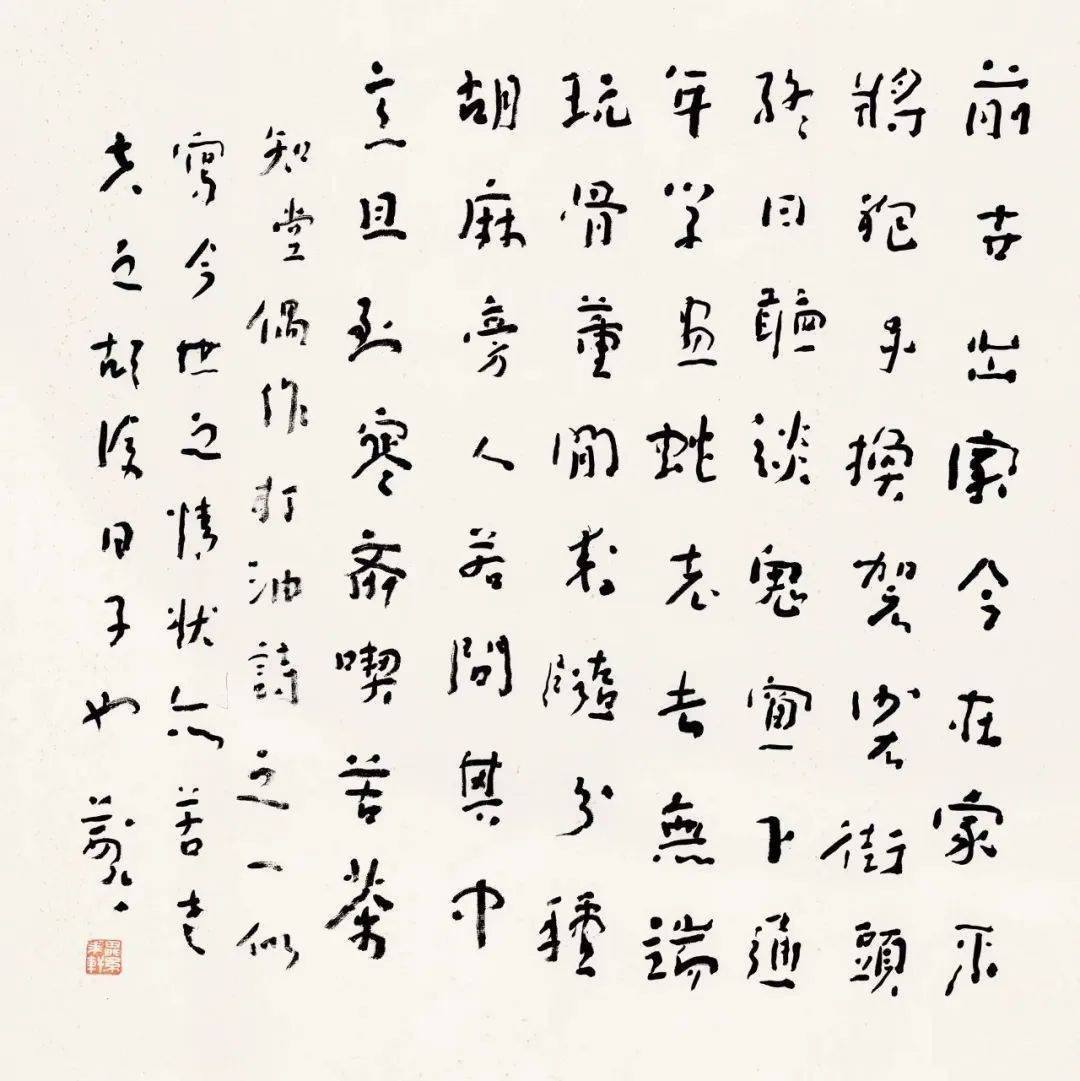 前世出家今在家不
將袍子換袈裟街頭
終日聽談鬼窗下通
年學畫蛇老去無端
玩骨董閒來隨分種
胡麻旁人若問其中
意且到寒齋喫苦茶
知堂偶作打油詩之一似
寫今世之情狀亦若老
夫之胡塗日子也